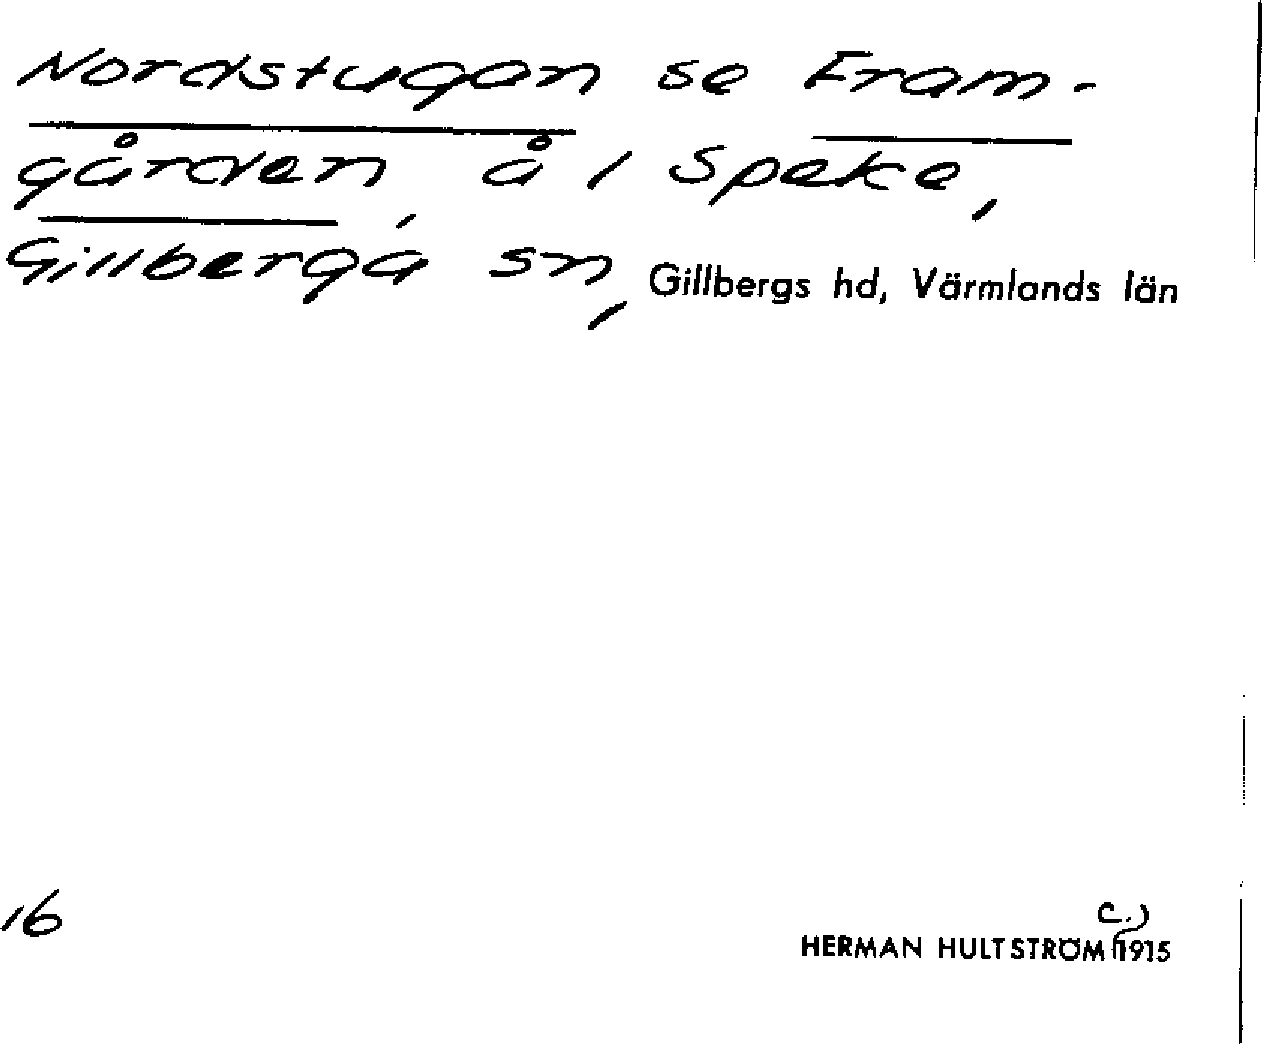 Nordstugan se Fram-
gården, å 1 Speke,
Gillberga sn, Gillbergs hd, Värmlands län
16
c.)
HERMAN HULTSTRÖM 1915